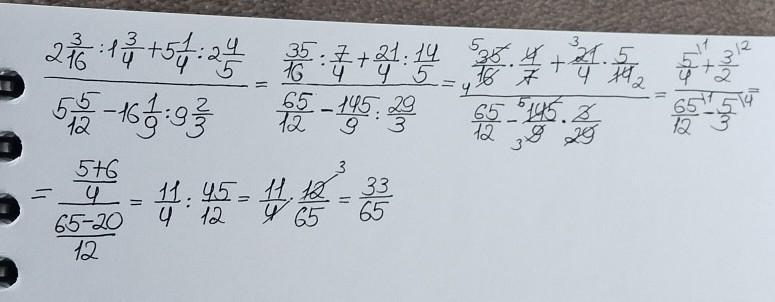 (2 3/16 : 1 3/4 + 5 1/4 : 2 4/5) / (5 5/12 - 16 1/9 : 9 2/3) = (35/16 : 7/4 + 21/4 : 14/5) / (65/12 - 145/9 : 29/3) = (35/16 · 4/7 + 21/4 · 5/14) / (65/12 - 145/9 · 3/29) = (5/4 + 3/2) / (65/12 - 5/3) =
= ((5+6)/4) / ((65-20)/12) = 11/4 : 45/12 = 11/4 · 12/65 = 33/65